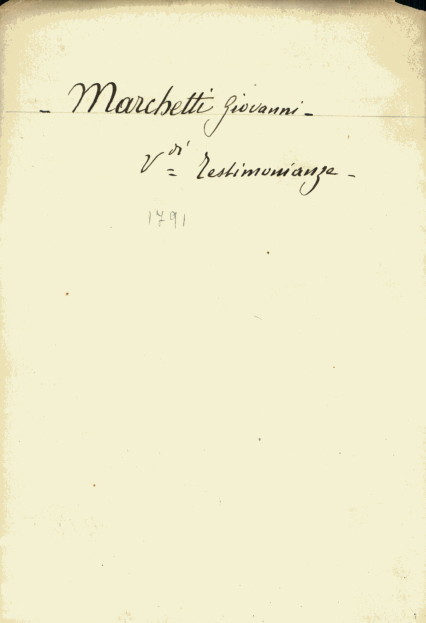 - Marchetti Giovanni -
V.di = Testimonianze -
1791